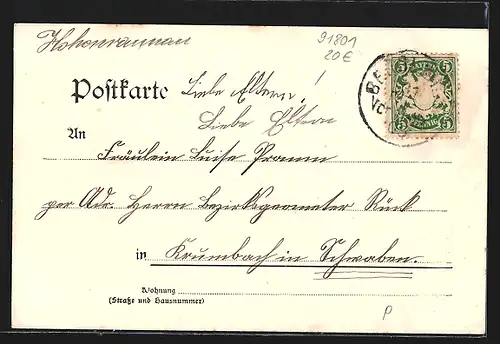 Hohenraunau
91801
20€
Postkarte
Liebe Eltern!
Liebe Eltern
BAYERN
5 5
5 5
PFENNIG
An
Fräulein Luise Pramm
per Adr. Herrn Bezirksgeometer Rück
in Krumbach in Schwaben.
Wohnung
(Straße und Hausnummer)
P